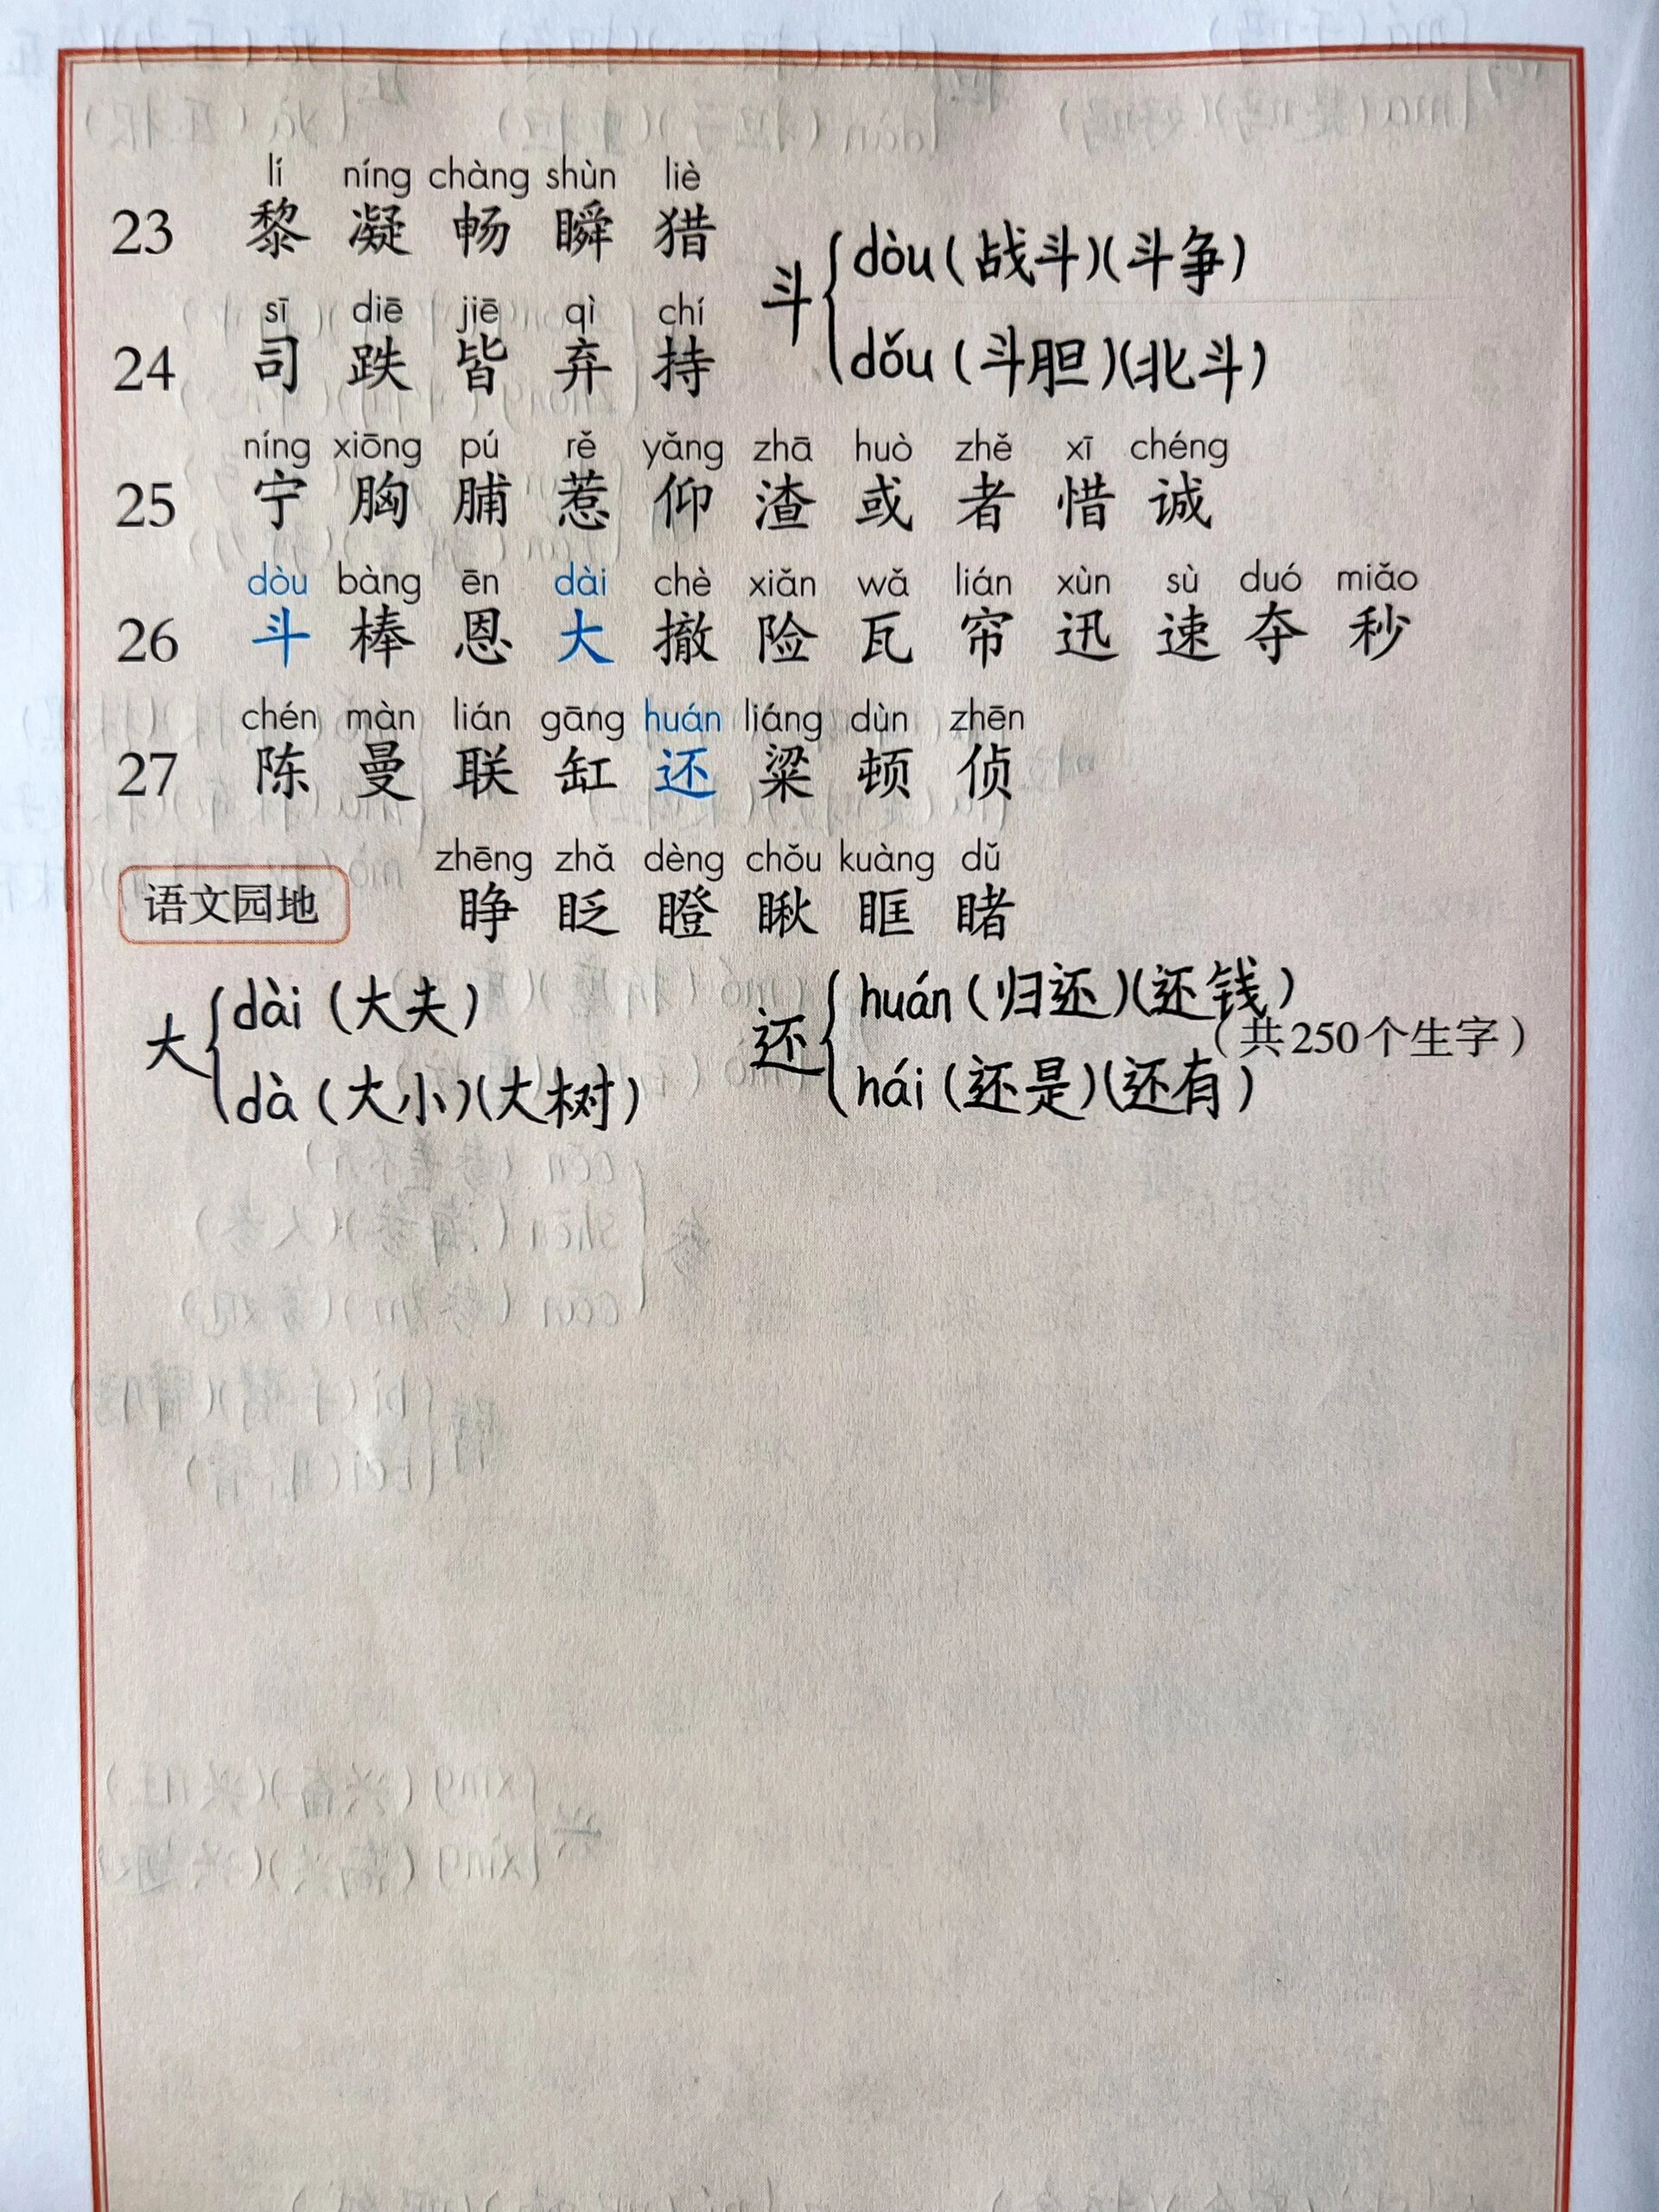 lí níng chàng shùn liè
23 黎 凝 畅 瞬 猎
斗 dòu (战斗)(斗争)
dǒu (斗胆)(北斗)
sī diē jiē qì chí
24 司 跌 皆 弃 持
níng xiōng pú rě yǎng zhā huò zhě xī chéng
25 宁 胸 脯 惹 仰 渣 或 者 惜 诚
dòu bàng ēn dài chè xiǎn wǎ lián xùn sù duó miǎo
26 斗 棒 恩 大 撤 险 瓦 帘 迅 速 夺 秒
chén màn lián gāng huán liáng dùn zhēn
27 陈 曼 联 缸 还 梁 顿 侦
zhēng zhǎ dèng chǒu kuàng dǔ
语文园地 睁 眨 瞪 瞅 眶 睹
大 dài (大夫)
dà (大小)(大树)
还 huán (归还)(还钱)
hái (还是)(还有)
(共250个生字)